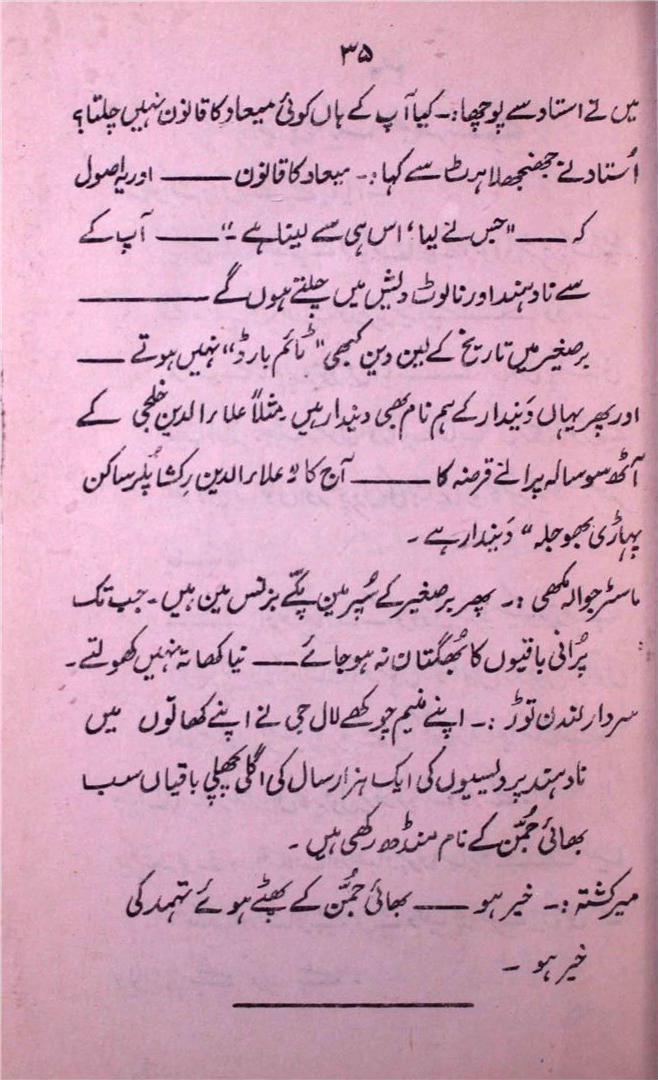 ۳۵
میں نے استاد سے پوچھا:۔ کیا آپ کے ہاں کوئی میعاد کا قانون نہیں چلتا؟
اُستاد نے جھنجھلاہٹ سے کہا:۔ میعاد کا قانون —— اور یہ اصول
کہ —— "جس نے لیا، اس ہی سے لینا ہے۔" —— آپ کے
سے نادہند اور نالوٹ دلیش میں چلتے ہوں گے ——
برصغیر میں تاریخ کے لین دین کبھی "ٹائم بارڈ" نہیں ہوتے ——
اور پھر یہاں دَیندار کے ہم نام بھی دیندار ہیں۔ مثلاً علاء الدین خلجی کے
آٹھ سو سالہ پرانے قرضہ کا —— آج کا "علاء الدین رکشا پُلر ساکن
پہاڑی بھوجلہ" دَیندار ہے۔
ماسٹر جوالہ مکھی :۔ پھر برصغیر کے سُپر مین پکّے بزنس مین ہیں۔ جب تک
پُرانی باقیوں کا بھُگتان نہ ہو جائے —— نیا کھاتہ نہیں کھولتے۔
سردار لندن توڑ :۔ اپنے منیم چوکھے لال جی نے اپنے کھاتوں میں
نادہند پردیسیوں کی ایک ہزار سال کی اگلی پچھلی باقیاں سب
بھائی جُمّن کے نام منڈھ رکھی ہیں۔
میر کشتہ :۔ خیر ہو —— بھائی جُمّن کے پھٹے ہوئے تہمد کی
خیر ہو ۔